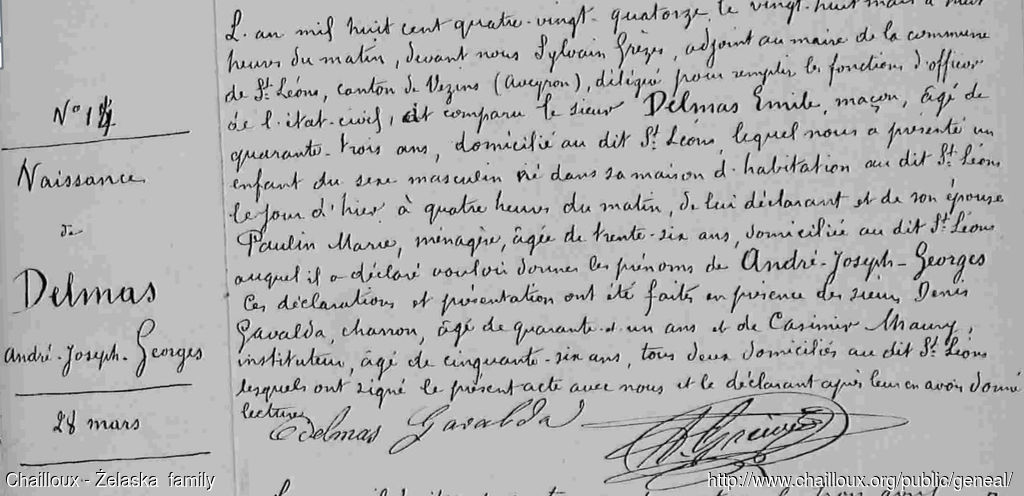 N° 14
Naissance
de
Delmas
André-Joseph-Georges
28 mars
L'an mil huit cent quatre-vingt-quatorze, le vingt-huit mars à
heures du matin, devant nous Sylvain Grèzes, adjoint au maire de la commune
de St Léons, canton de Vezins (Aveyron), délégué pour remplir les fonctions d'officier
de l'état-civil, est comparu le sieur Delmas Emile, maçon, âgé de
quarante-trois ans, domicilié au dit St Léons, lequel nous a présenté un
enfant du sexe masculin né dans sa maison d'habitation au dit St Léons
le jour d'hier à quatre heures du matin, de lui déclarant et de son épouse
Paulin Marie, ménagère, âgée de trente-six ans, domiciliée au dit St Léons
auquel il a déclaré vouloir donner les prénoms de André-Joseph-Georges
Ces déclarations et présentation ont été faites en présence des sieurs Denis
Gavalda, charron, âgé de quarante-et-un ans et de Casimir Maury,
instituteur, âgé de cinquante-six ans, tous deux domiciliés au dit St Léons
lesquels ont signé le présent acte avec nous et le déclarant après leur en avoir donné
lecture
Edelmas Gavalda
Chailloux - Żelaska family
http://www.chailloux.org/public/geneal/